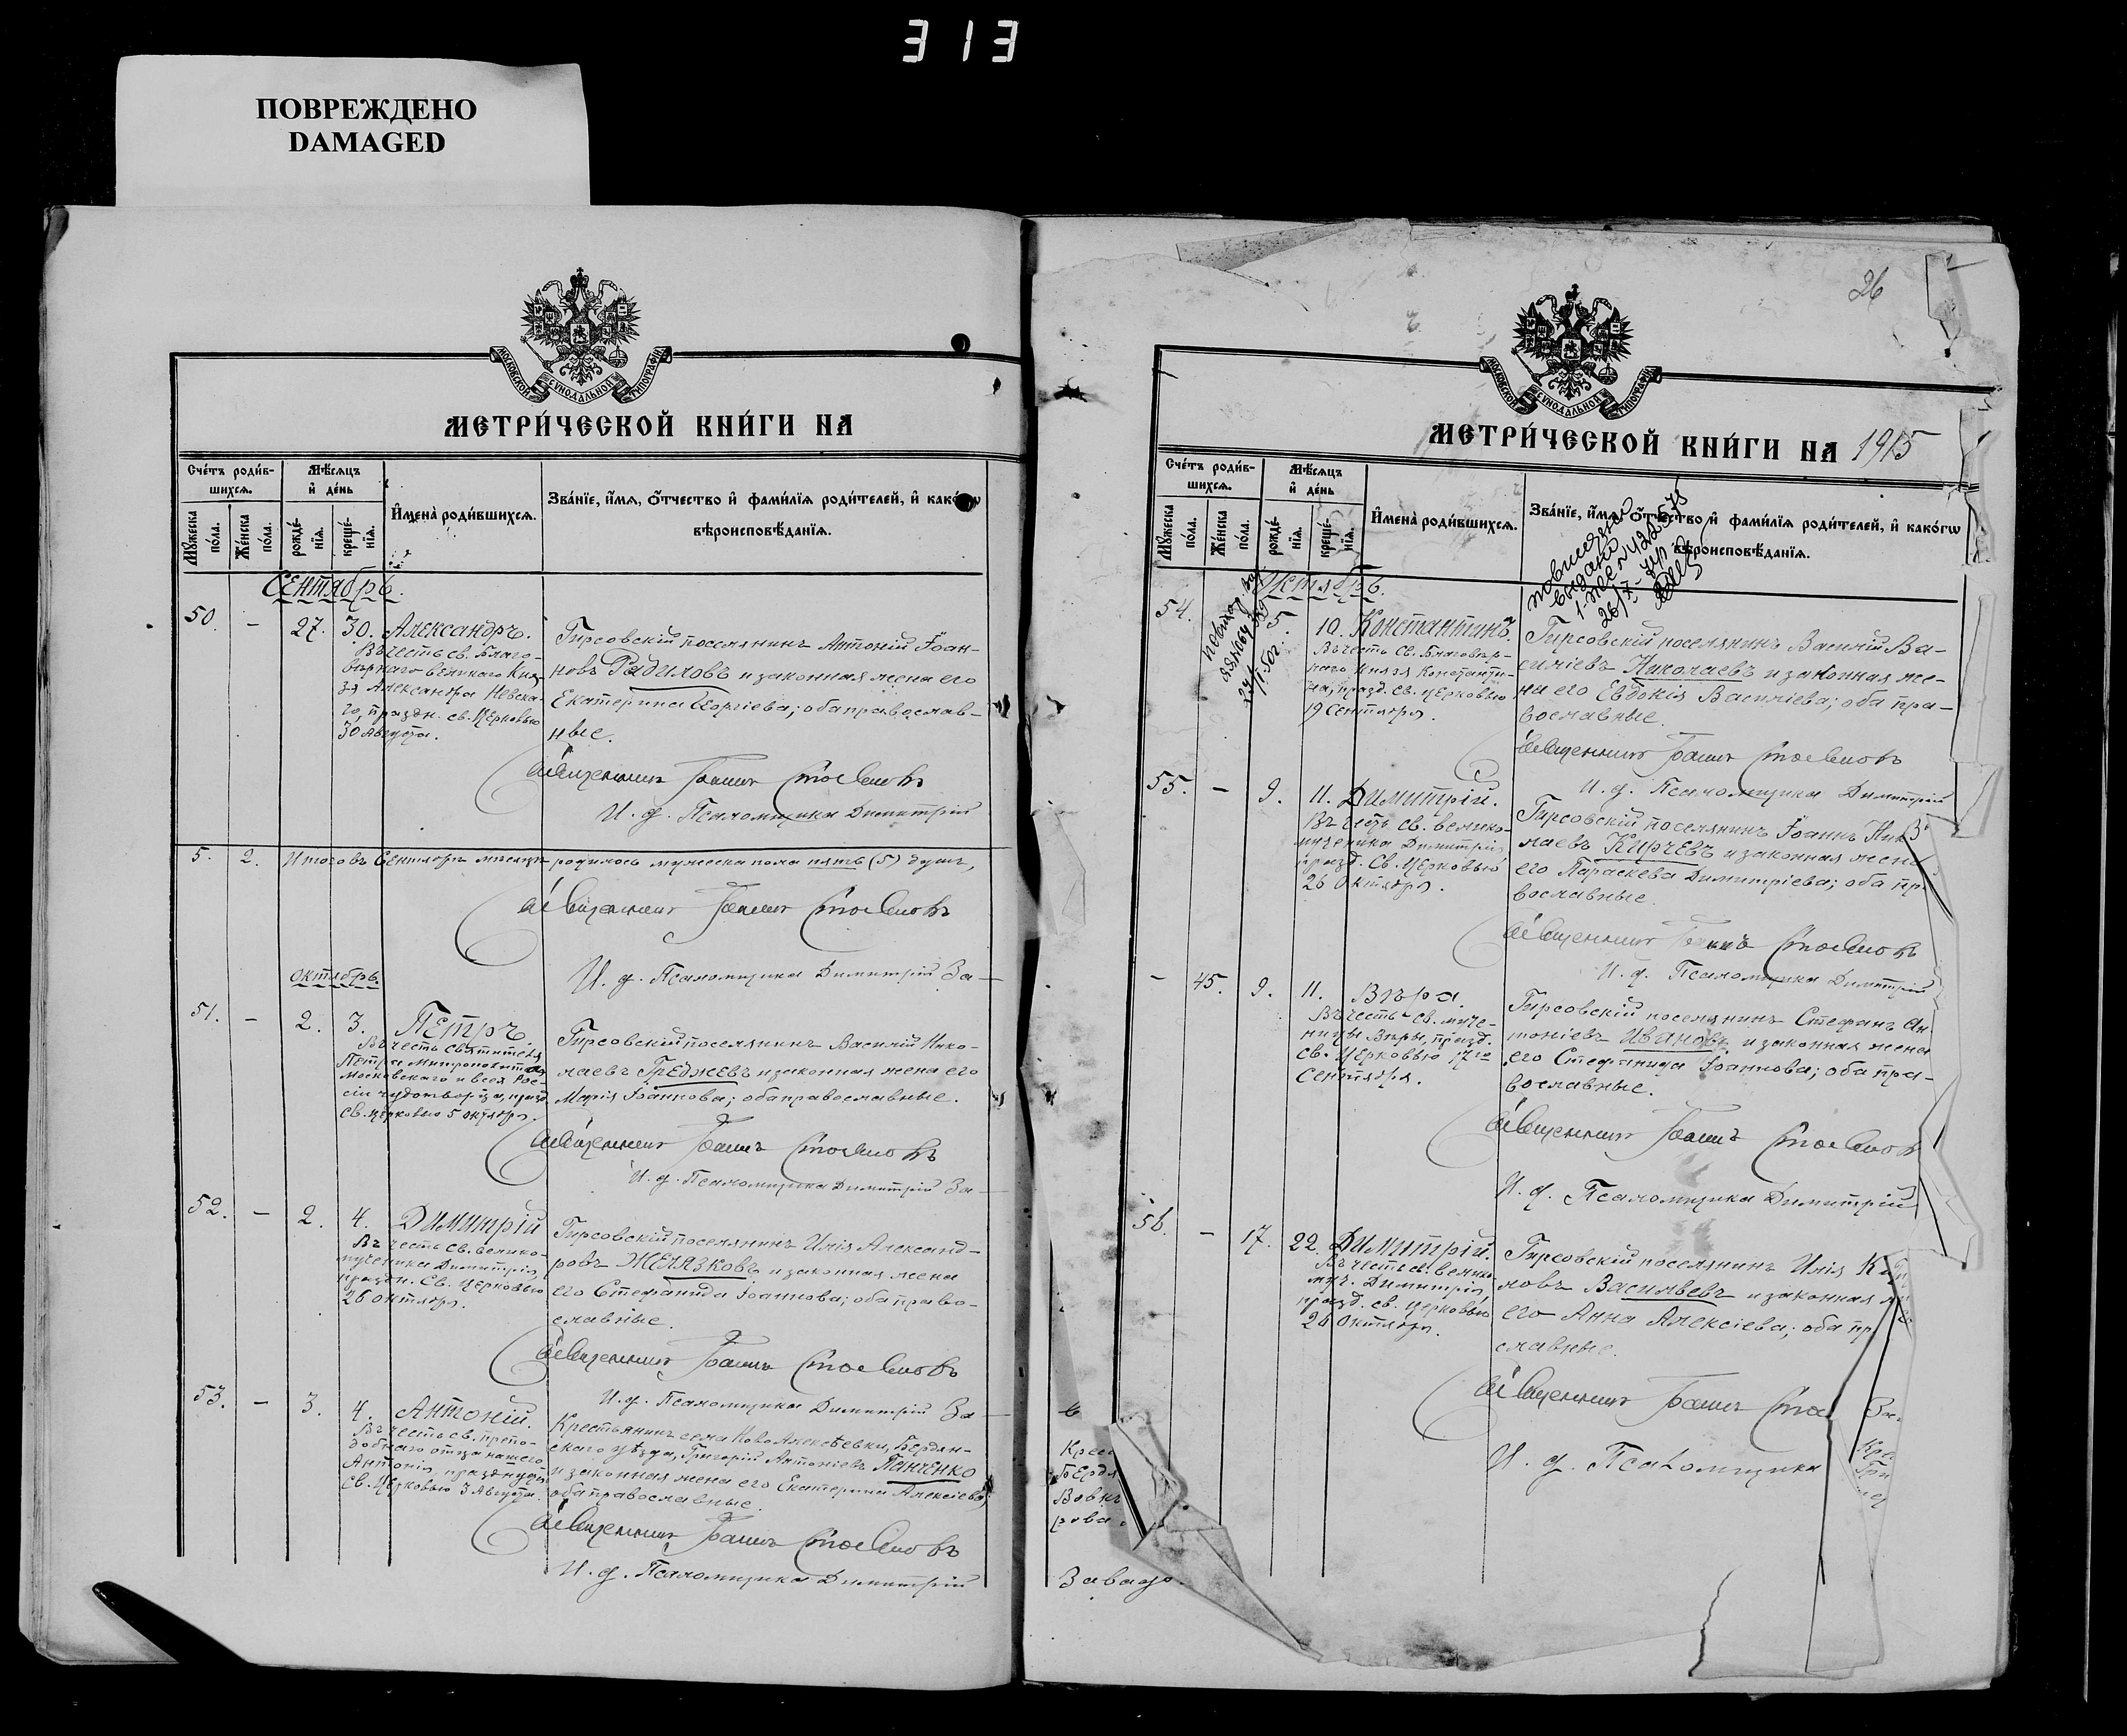 313
ПОВРЕЖДЕНО
DAMAGED
МОСКОВСКОЙ СѴНОДАЛЬНОЙ ТИПОГРАФІИ
МЕТРИ́ЧЕСКОЙ КНИ́ГИ НА
Сче́тъ роди́в-
шихсѧ.
Мѣ́сѧцъ
и҆ де́нь
Мꙋ́жеска по́ла.
Же́нска по́ла.
рожде́-
нїѧ.
креще́-
нїѧ.
И҆мена̀ роди́вшихсѧ.
Зва́нїе, и҆́мѧ, ѻ҆́тчество и҆ фами́лїѧ роди́телей, и҆ како́гѡ
вѣроисповѣ́данїѧ.
Сентябрь.
50. - 27. 30. Александръ.
Въ честь св. Благо-
вѣрнаго великаго Кня-
зя Александра Невска-
го, праздн. св. Церковью
30 Августа.
Гирсовскій поселянинъ Антоній Іоан-
новъ Радиловъ и законная жена его
Екатерина Георгіева; оба православ-
ные.
Священникъ Іоаннъ Стоевновъ
И. д. Псаломщика Димитрій
5. 2. Итого въ Сентябрѣ мѣсяцѣ родилось мужеска пола пять (5) душъ,
Священникъ Іоаннъ Стоевновъ
И. д. Псаломщика Димитрій За-
Октябрь.
51. - 2. 3. Петръ.
Въ честь Святителя
Петра Митрополита
Московскаго и всея Рос-
сіи чудотворца, празд.
св. церковью 5 октября.
Гирсовскій поселянинъ Василій Нико-
лаевъ Греджевъ и законная жена его
Марія Іоаннова; оба православные.
Священникъ Іоаннъ Стоевновъ
И. д. Псаломщика Димитрій За-
52. - 2. 4. Димитрій
Въ честь св. велико-
мученика Димитрія,
праздн. св. церковью
26 октября.
Гирсовскій поселянинъ Илія Александ-
ровъ Желязковъ и законная жена
его Стефанида Іоаннова; оба право-
славные.
Священникъ Іоаннъ Стоевновъ
И. д. Псаломщика Димитрій За-
53. - 3. 4. Антоній.
Въ честь св. препо-
добнаго отца нашего
Антонія, празднуем.
св. Церковью 3 Августа.
Крестьянинъ села Ново Алексѣевки, Бердян-
скаго уѣзда, Григорій Антоніевъ Панченко
и законная жена его Екатерина Алексіева;
оба православные.
Священникъ Іоаннъ Стоевновъ
И. д. Псаломщика Димитрій
26
МОСКОВСКОЙ СѴНОДАЛЬНОЙ ТИПОГРАФІИ
МЕТРИ́ЧЕСКОЙ КНИ́ГИ НА 1915
Сче́тъ роди́в-
шихсѧ.
Мѣ́сѧцъ
и҆ де́нь
Мꙋ́жеска по́ла.
Же́нска по́ла.
рожде́-
нїѧ.
креще́-
нїѧ.
И҆мена̀ роди́вшихсѧ.
Зва́нїе, и҆́мѧ, ѻ҆́тчество и҆ фами́лїѧ роди́телей, и҆ како́гѡ
вѣроисповѣ́данїѧ.
Октябрь.
54. 5. 10. Константинъ.
Въ честь св. Благовѣр-
наго Князя Константи-
на, празд. св. церковью
19 Сентября.
Гирсовскій поселянинъ Василій Ва-
силіевъ Николаевъ и законная же-
на его Евдокія Василіева; оба пра-
вославные.
Священникъ Іоаннъ Стоевновъ
И. д. Псаломщика Димитрій
55. - 9. 11. Димитрій.
Въ честь св. велико-
мученика Димитрія
празд. св. церковью
26 Октября.
Гирсовскій поселянинъ Іоаннъ Ник
лаевъ Кирчевъ и законная жена
его Параскева Димитріева; оба пр
вославные.
Священникъ Іоаннъ Стоевновъ
И. д. Псаломщика Димитрій
- 45. 9. 11. Вѣра.
Въ честь св. муче-
ницы Вѣры, празд.
св. Церковью 17го
Сентября.
Гирсовскій поселянинъ Стефанъ Ан
тоніевъ Ивановъ и законная жена
его Стефанида Іоаннова; оба пра-
вославные.
Священникъ Іоаннъ Стоевновъ
И. д. Псаломщика Димитрій
56. - 17. 22. Димитрій.
Въ честь св. велико-
муч. Димитрія,
празд. св. церковью
26 Октября.
Гирсовскій поселянинъ Илія К
ловъ Васильевъ и законная
его Анна Алексіева; оба пр
славные.
Священникъ Іоаннъ Сто
И. д. Псаломщика
Крес
Бердя
Вовкъ
рова
Завадо